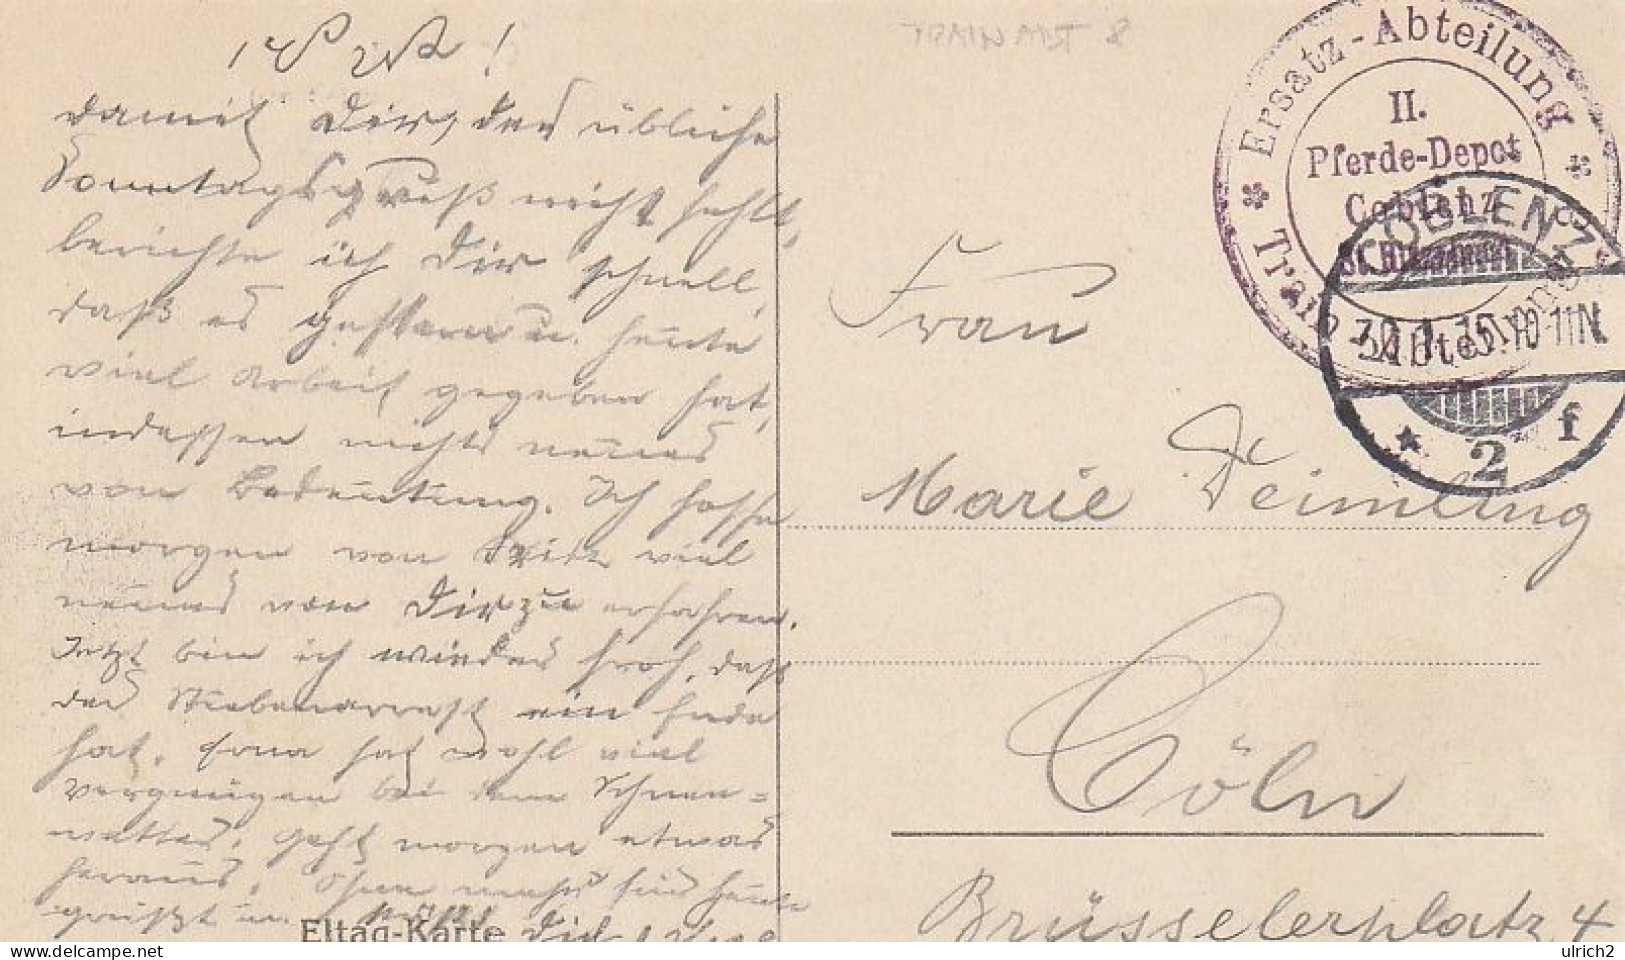 TRAIN ABT 8
damit Dir, der übliche
Sonntagsgruß nicht fehlt,
berichte ich Dir schnell,
daß es gestern u. heute
viel Arbeit gegeben hat,
indessen nichts neues
von Bedeutung. Ich hoffe
morgen von viel
neues von Dir zu erfahren.
Jetzt bin ich wieder froh, daß
der ein Ende
hat. hat wohl viel
Vergnügen bei dem Schnee=
wetter. Geht morgen etwas
heraus. Ohne mehr für heute
grüßt u. küßt Dich
Eltag-Karte
Ersatz-Abteilung
II.
Pferde-Depot
Coblenz
Train Abteilung
COBLENZ
30.1.15.10-11N
* 2 f
Frau
Marie Deimling
Cöln
Brüsselerplatz 4
ulrich2